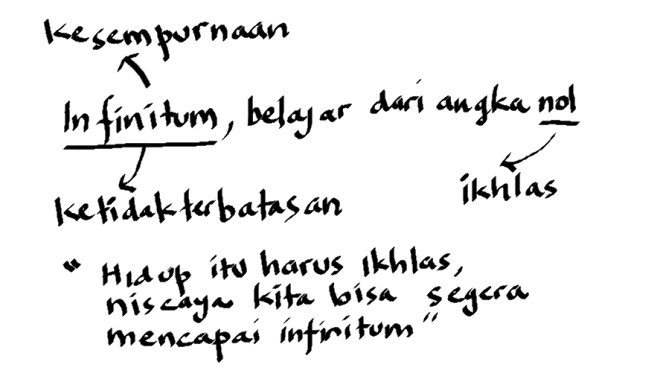 Kesempurnaan
Infinitum, belajar dari angka nol
ikhlas
Ketidakterbatasan
" Hidup itu harus ikhlas,
niscaya kita bisa segera
mencapai infinitum "